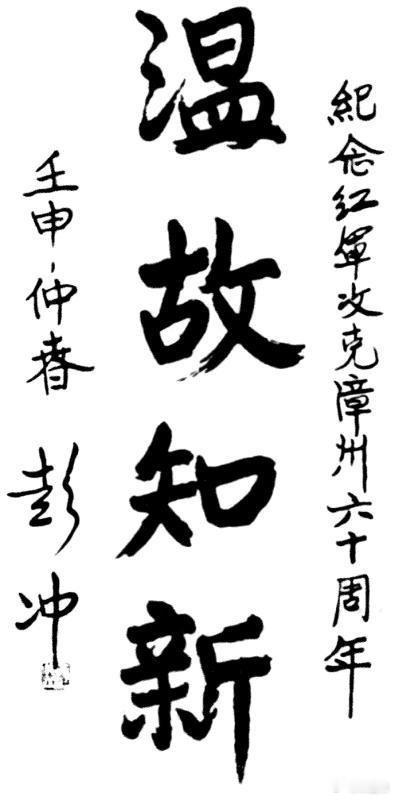 紀念红軍攻克漳州六十周年
温故知新
壬申仲春
彭冲